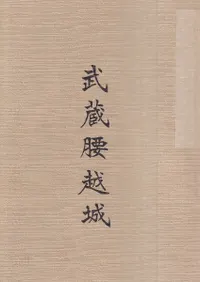 武蔵腰越城